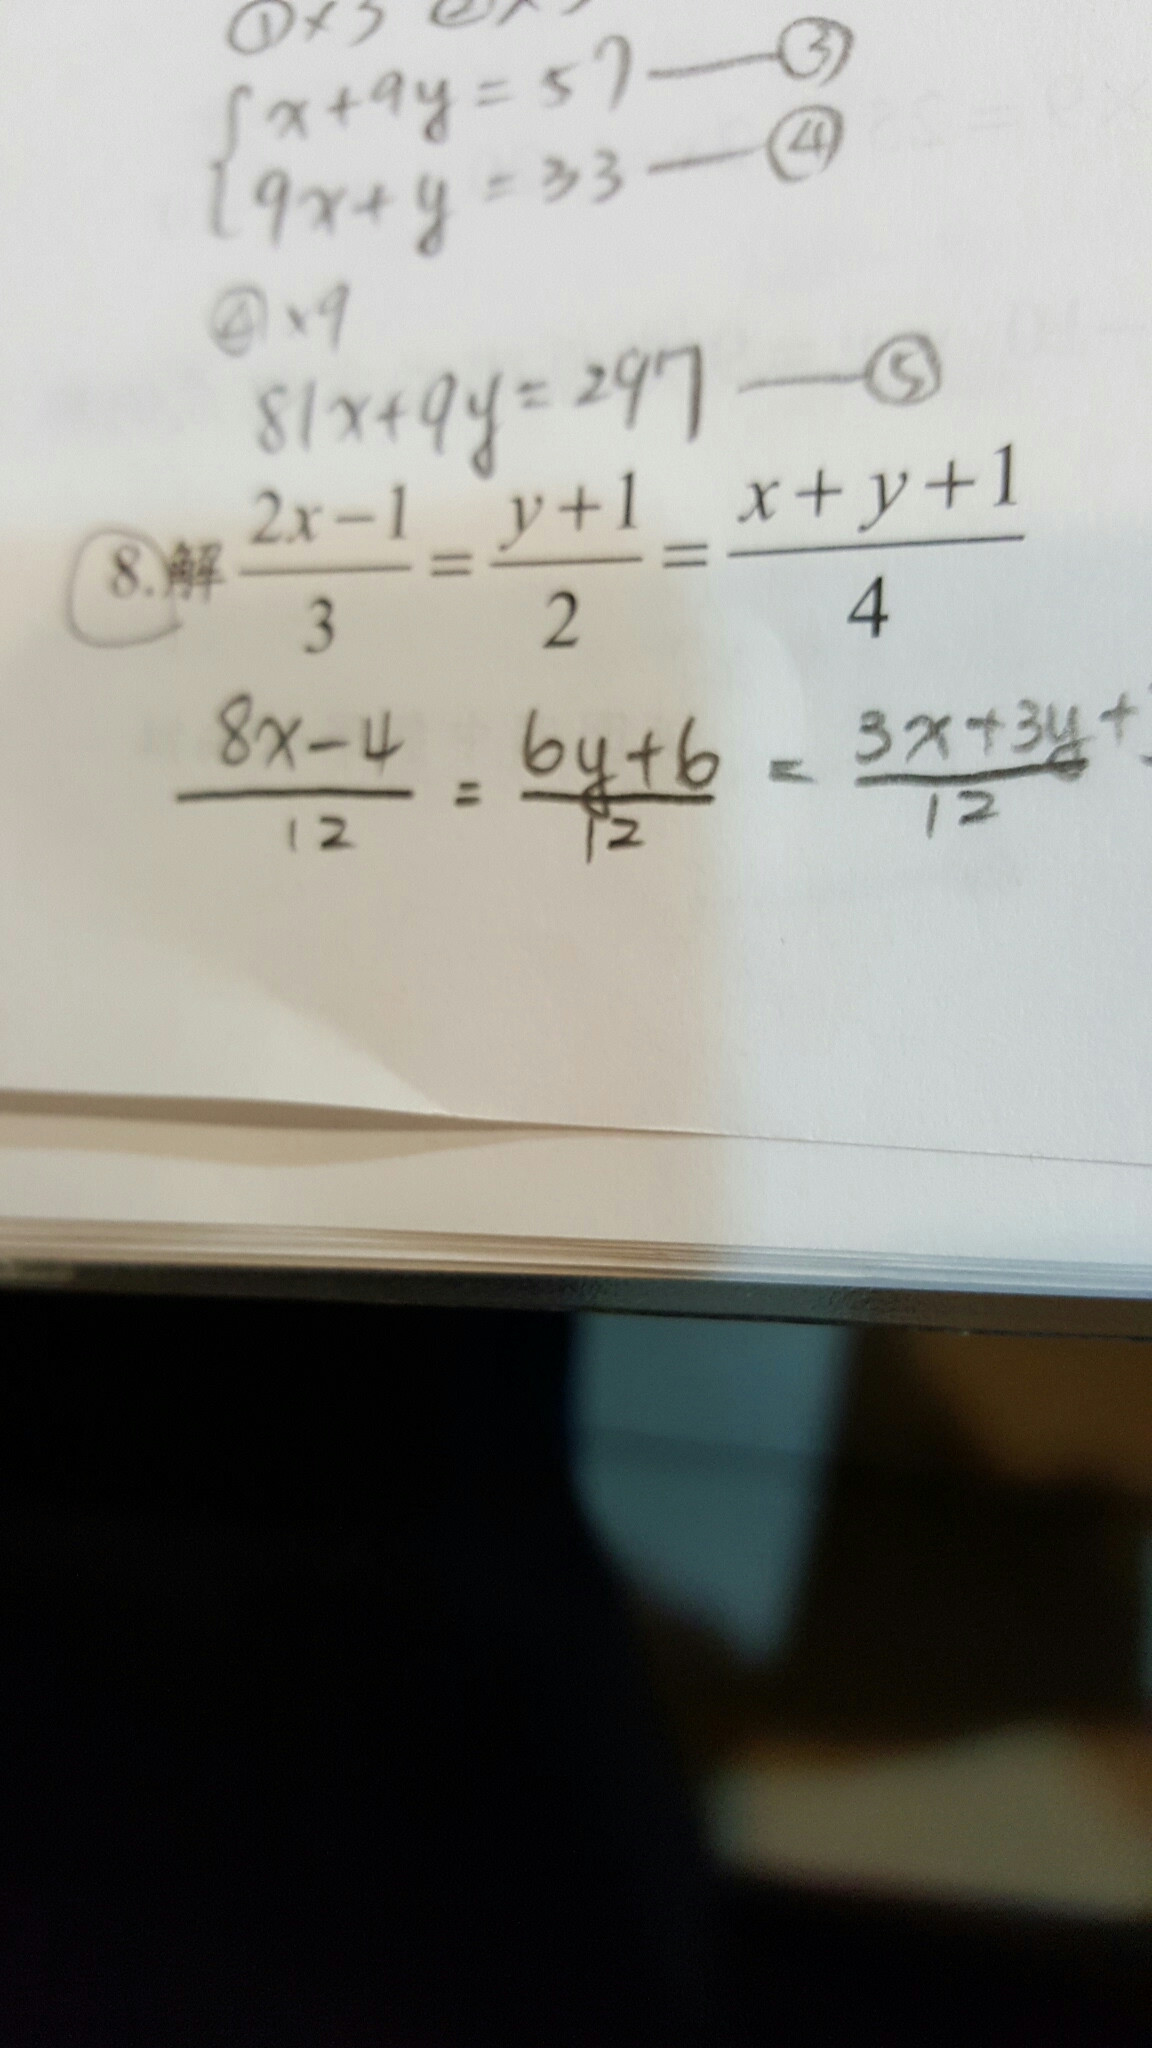 ①×3
{x+9y=57——③
9x+y=33——④
④×9
81x+9y=297——⑤
8.解 (2x-1)/3 = (y+1)/2 = (x+y+1)/4
(8x-4)/12 = (6y+6)/12 = (3x+3y+)/12